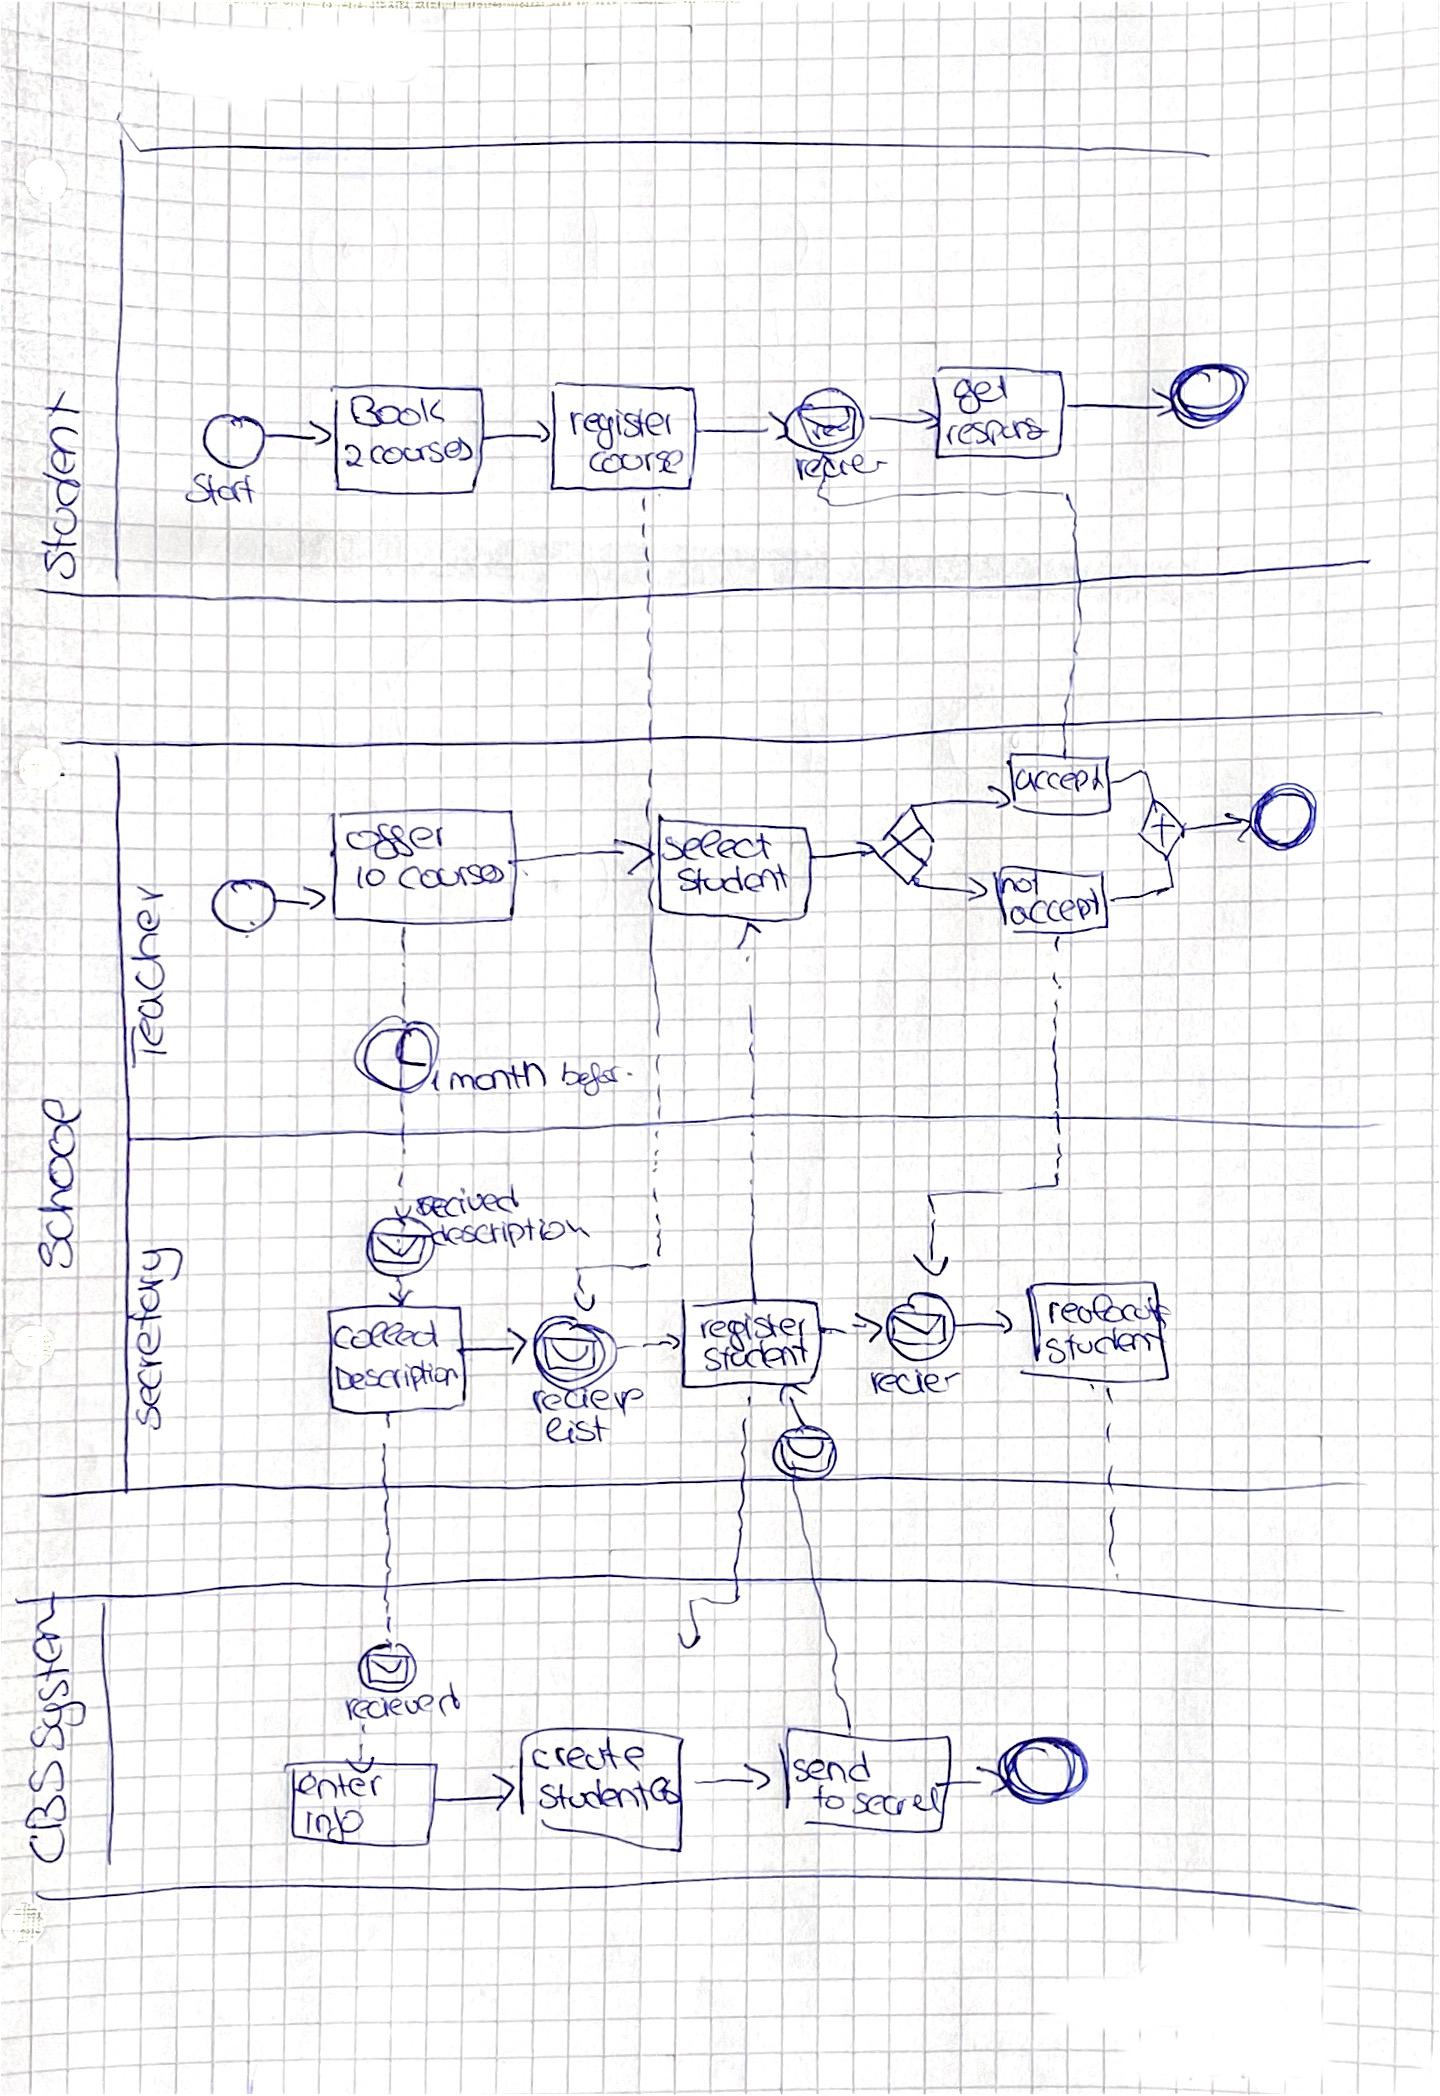 Student
Start
Book
2 courses
register
course
recier
get
respons
School
Teacher
offer
10 courses
select
student
accept
not
accept
1 month befor.
secretary
recived
description
collect
Description
recieve
list
register
student
recier
student
CBS System
recieved
enter
info
create
student
send
to secret